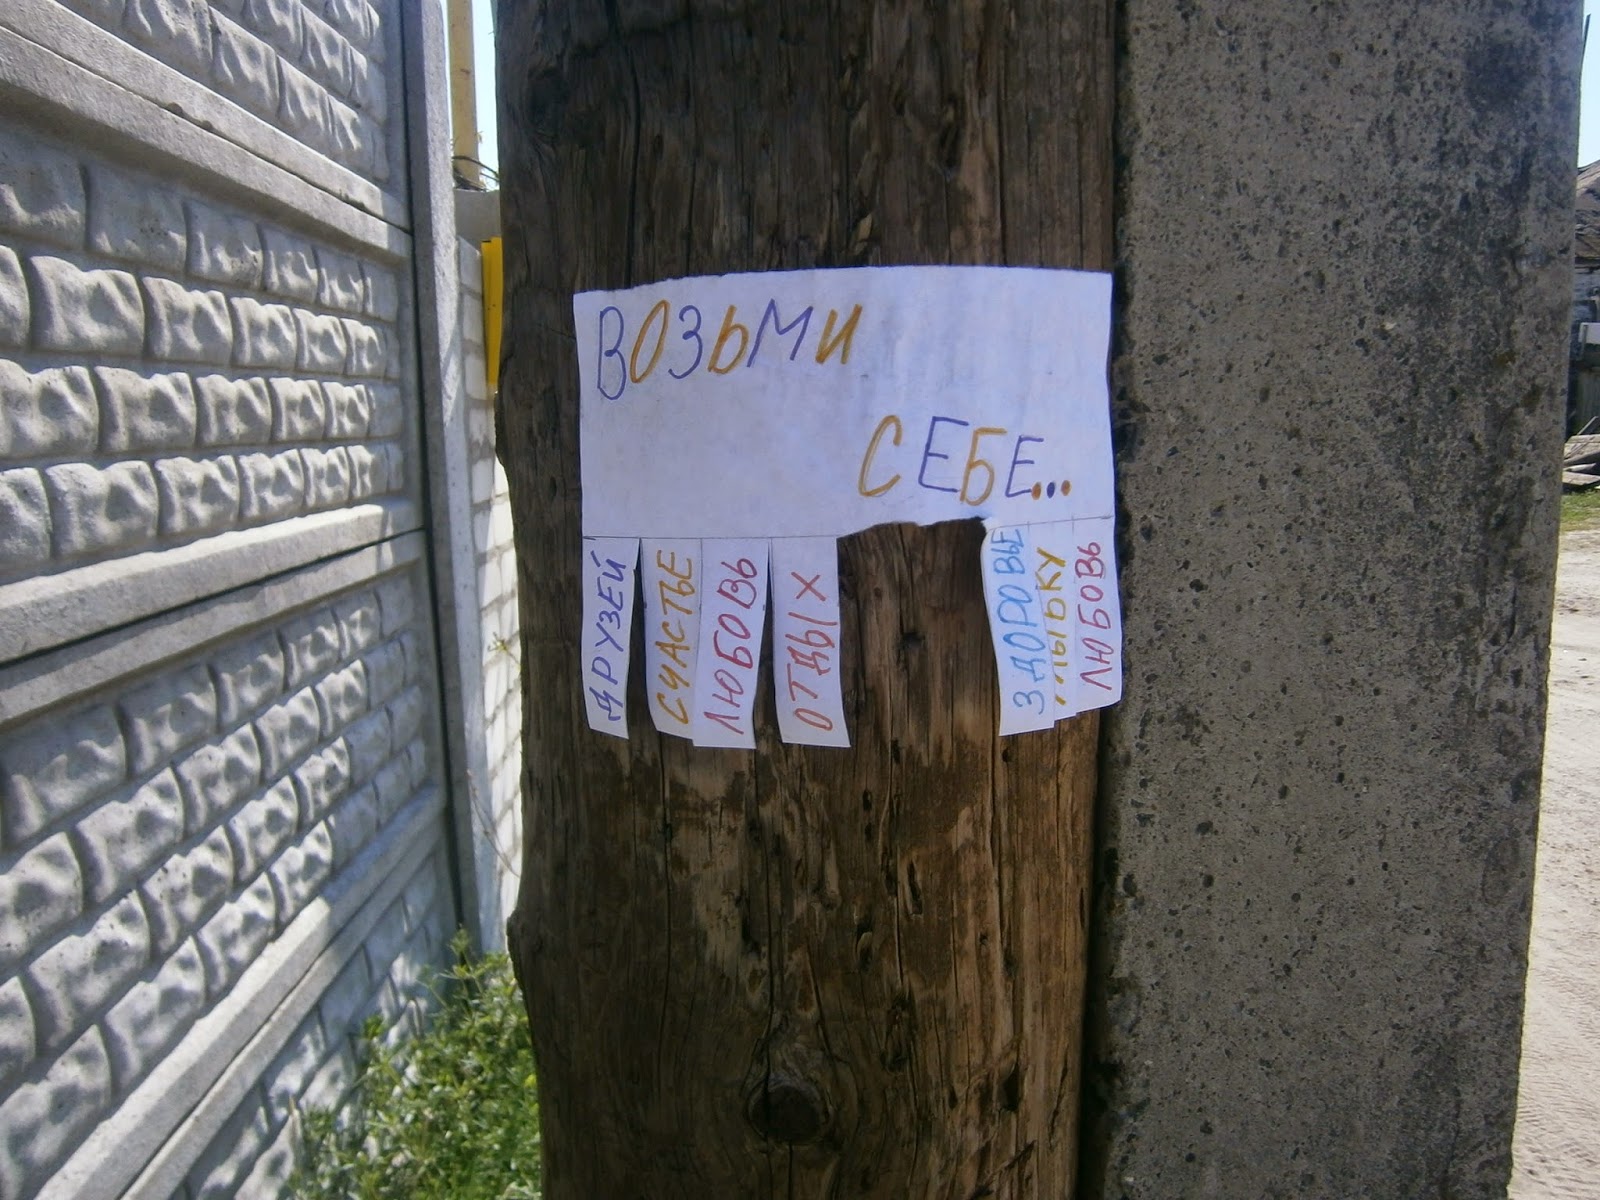 ВОЗЬМИ
СЕБЕ...
ДРУЗЕЙ
СЧАСТЬЕ
ЛЮБОВЬ
ОТДЫХ
ЗДОРОВЬЕ
УЛЫБКУ
ЛЮБОВЬ